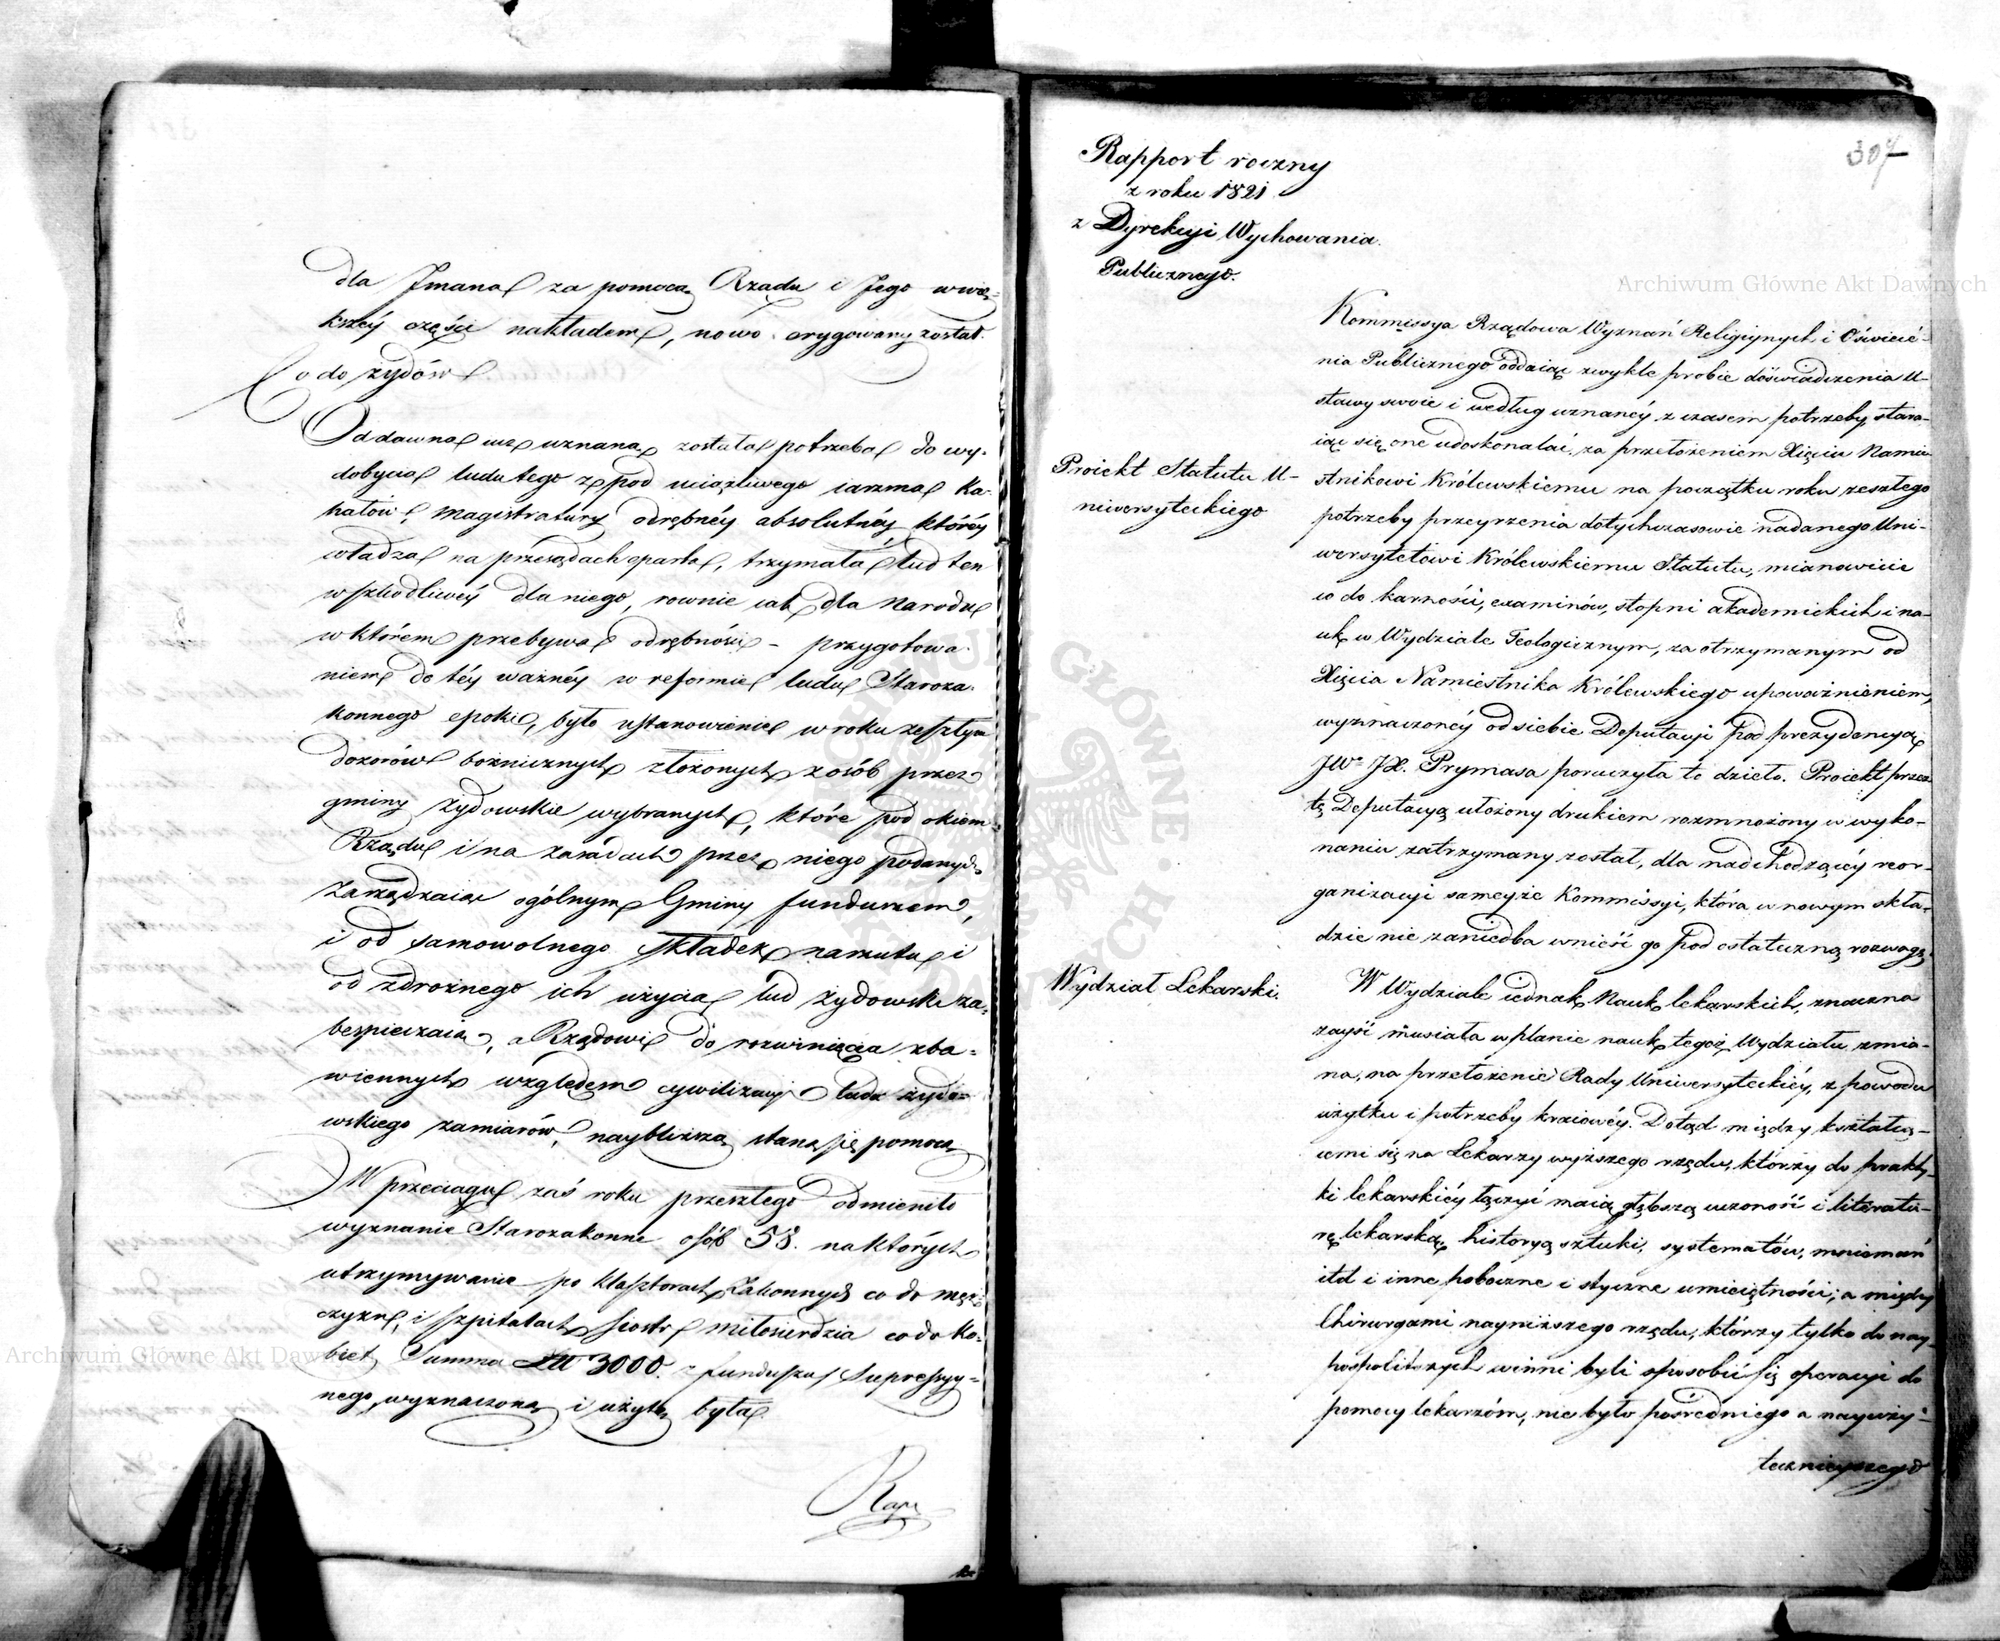 dla Imana za pomocą Rządu i Jego wwię-
kszéy części nakładem, nowo erygowany został.
Co do żydów
Oddawna iuż uznana została potrzeba do wy-
dobycia ludu tego z pod uciążliwego iarzma Ka-
hałów, magistratury odrębnéy absolutnéy, któréy
władza na przesądach oparta, trzymała lud ten
w szkodliwéy dla niego, rownie iak dla Narodu
w którem przebywa odrębności - przygotowa-
niem do téy ważnéy w reformie ludu Staroza-
konnego epoki, było ustanowienie w roku zeszłym
dozorów bożnicznych złożonych z osób przez
gminy żydowskie wybranych, które pod okiem
Rządu i na zasadach przez niego podanych
Zarządzaiąc ogólnym Gminy funduszem,
i od samowolnego składek narzutu i
od zdrożnego ich użycia lud żydowski za-
bezpieczaią, a Rządowi do rozwinięcia zba-
wiennych względem cywilizacyi ludu żydo-
wskiego zamiarów, naybliższą staną się pomocą
W przeciągu zaś roku przeszłego odmieniło
wyznanie Starozakonne osób 58. na których
utrzymywanie po klasztorach Zakonnych co do męż-
czyzn, i szpitalach Siostr miłosierdzia co do ko-
biet, Summa 3000. z funduszu Suppressyy-
nego, wyznaczona i użyta była.
Rapp
307
Rapport roczny
z roku 1821
z Dyrekcyi Wychowania
Publicznego.
Kommissya Rządowa Wyznań Religiynych i Oświecé-
nia Publicznego oddaiąc zwykle probie doświadczenia U-
stawy swoie i według uznanéy z czasem potrzeby stara-
iąc się one udoskonalać, za przełożeniem Xięciu Namie-
Proiekt Statutu U-
niwersyteckiego
stnikowi Królewskiemu na początku roku zeszłego
potrzeby przeyrzenia dotychczasowie nadanego Uni-
wersytetowi Królewskiemu Statutu, mianowicie
co do karności, examinów, stopni akademickich i na-
uk w Wydziale Teologicznym, za otrzymanym od
Xięcia Namiestnika Królewskiego upoważnieniem,
wyznaczonéy od siebie Deputacyi pod prezydencyą
JWº JX. Prymasa poruczyła to dzieło. Proiekt przez
tę Deputacyą ułożony drukiem rozmnożony w wyko-
naniu zatrzymany został, dla nadchodzącéy reor-
ganizacyi sameyże Kommissyi, która w nowym skła-
dzie nie zaniedba wnieść go pod ostateczną rozwagę.
Wydział Lekarski.
W Wydziale iednak Nauk lekarskich, znaczna
zayść musiała w planie nauk tegoż Wydziału zmia-
na, na przełożenie Rady Uniwersyteckiéy, z powodu
użytku i potrzeby kraiowéy. Dotąd między kształcą-
cemi się na Lekarzy wyższego rzędu, którzy do prakty-
ki lekarskiéy łączyć maią głębszą uczoność i literatu-
rę lekarską, historyą sztuki, systematów, mniemań
itd i inne poboczne i styczne umieiętności; a między
Chirurgami nayniższego rzędu, którzy tylko do nay-
pospolitszych winni byli sposobić się operacyi do
pomocy lekarzóm, nie było pośredniego a nayuży-
tecznieyszego
Archiwum Główne Akt Dawnych
Archiwum Główne Akt Dawnych
ARCHIWUM GŁÓWNE AKT DAWNYCH